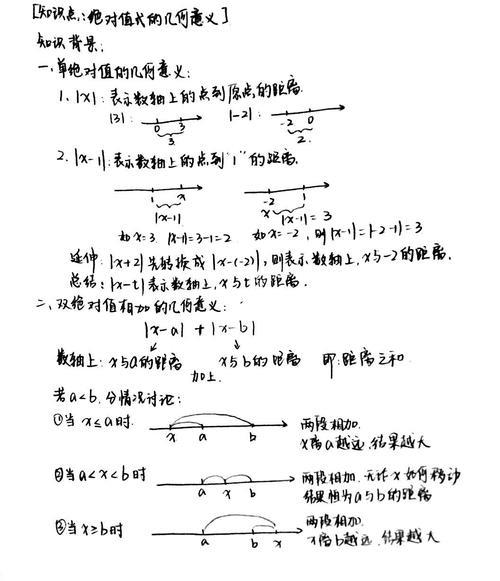 [知识点:绝对值式的几何意义]
知识背景:
一.单绝对值的几何意义:
1. |x|:表示数轴上的点到原点的距离.
|3|: 0 3 3 |-2|: -2 0 2.
2. |x-1|:表示数轴上的点到"1"的距离.
1 x |x-1| -2 x 1 |x-1|=3
如x=3. |x-1|=3-1=2 如x=-2,则|x-1|=|-2-1|=3
延伸:|x+2|先转换成|x-(-2)|,则表示数轴上,x与-2的距离.
总结:|x-t|表示数轴上,x与t的距离.
二.双绝对值相加的几何意义:
|x-a| + |x-b|
数轴上:x与a的距离 加上 x与b的距离 即:距离之和.
若a<b.分情况讨论:
①当x≤a时. x a b 两段相加.
x离a越远.结果越大
②当a<x<b时 a x b 两段相加.无论x如何移动
结果相为a与b的距离
③当x≥b时 a b x 两段相加.
x离b越远.结果越大